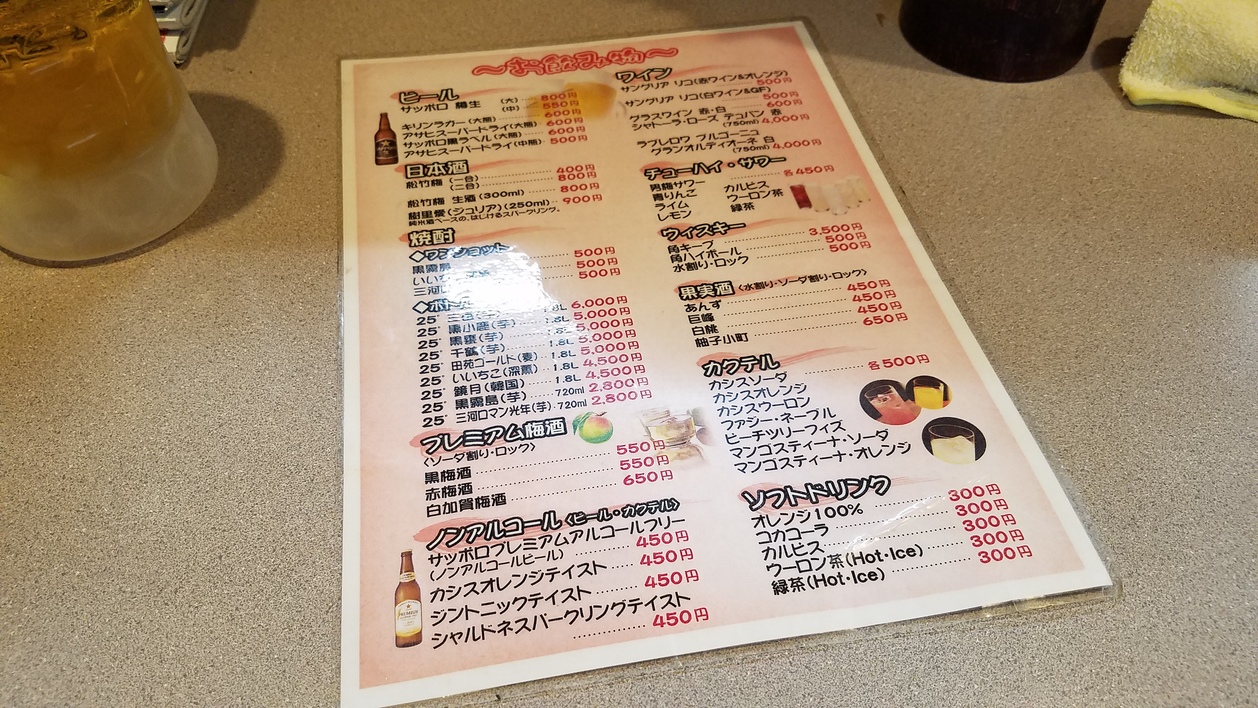 ～お飲み物～
ビール
サッポロ 樽生 (大) 800円
(中) 550円
キリンラガー(大瓶) 600円
アサヒスーパードライ(大瓶) 600円
サッポロ黒ラベル(大瓶) 600円
アサヒスーパードライ(中瓶) 500円
日本酒
松竹梅 (一合) 400円
(二合) 800円
松竹梅 生酒 (300ml) 800円
樹里愛(ジュリア)(250ml) 900円
純米酒ベースの、はじけるスパークリング。
焼酎
◆ワンショット
黒霧島 500円
いいち 500円
三河 500円
◆ボト
25° (芋) 1.8L 6,000円
25° 黒小鹿(芋) 1.8L 5,000円
25° 黒棗(芋) 1.8L 5,000円
25° 千鶴(芋) 1.8L 5,000円
25° 田苑ゴールド(麦) 1.8L 5,000円
25° いいちこ(深薫) 1.8L 4,500円
25° 鏡月(韓国) 1.8L 4,500円
25° 黒霧島(芋) 720ml 2,800円
25° 三河ロマン光年(芋) 720ml 2,800円
プレミアム梅酒
〈ソーダ割り・ロック〉
黒梅酒 550円
赤梅酒 550円
白加賀梅酒 650円
ノンアルコール〈ビール・カクテル〉
サッポロプレミアムアルコールフリー
(ノンアルコールビール) 450円
カシスオレンジテイスト 450円
ジントニックテイスト 450円
シャルドネスパークリングテイスト
450円
ワイン
サングリア リコ(赤ワイン&オレンジ)
500円
サングリア リコ(白ワイン&GF)
500円
グラスワイン 赤・白 600円
シャトーラ・ローズ デュバン 赤
(750ml) 4,000円
ラブレロワ ブルゴーニュ
グランオルディオーネ 白
(750ml) 4,000円
チューハイ・サワー
各450円
男梅サワー カルピス
青りんご ウーロン茶
ライム 緑茶
レモン
ウィスキー
角キープ 3,500円
角ハイボール 500円
水割り・ロック 500円
果実酒〈水割り・ソーダ割り・ロック〉
あんず 450円
巨峰 450円
白桃 450円
柚子小町 650円
カクテル
各500円
カシスソーダ
カシスオレンジ
カシスウーロン
ファジー・ネーブル
ピーチツリーフィズ
マンゴスティーナ・ソーダ
マンゴスティーナ・オレンジ
ソフトドリンク
オレンジ100% 300円
コカコーラ 300円
カルピス 300円
ウーロン茶(Hot・Ice) 300円
緑茶(Hot・Ice) 300円